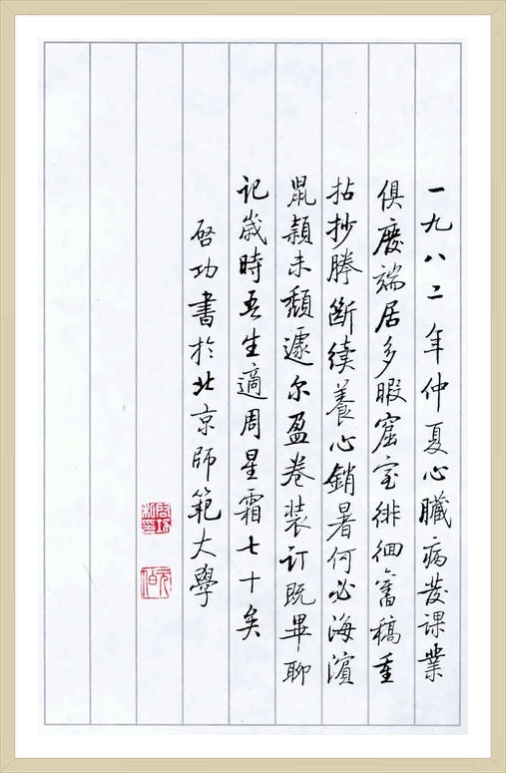 一九八二年仲夏心臟病發课業
俱廢端居多暇窟室徘徊舊稿重
拈抄謄斷續養心銷暑何必海濵
鼠穎未颓遽尔盈卷装订既畢聊
记歲時吾生適周星霜七十矣
启功書於北京師範大學